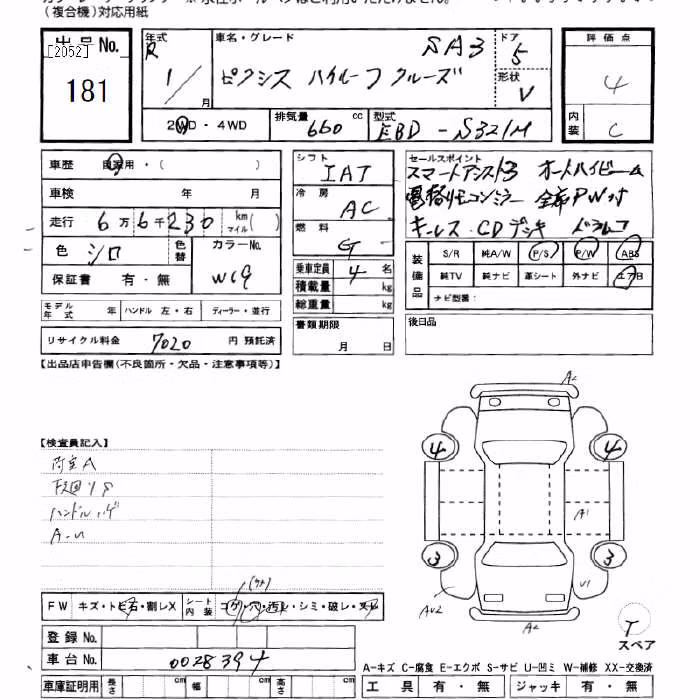 (複合機)対応用紙
出品No.
[2052]
181
年式 R 1/ 月
車名・グレード SA3
ピクシス ハイルーフ クルーズ
ドア 5
形状 V
2WD・4WD
排気量 660 cc
型式 EBD-S321M
評価点 4
内装 C
車歴 自家用・( )
車検 年 月
走行 6万6千230 km マイル( )
色 シロ 色替
カラーNo. W19
保証書 有・無
モデル年式 年 ハンドル 左・右 ディーラー・並行
リサイクル料金 7020 円 預託済
シフト IAT
冷房 AC
燃料 G
乗車定員 4 名
積載量 kg
総重量 kg
書類期限 月 日
セールスポイント
スマートアシスト3 オートハイビーム
電格リモコンミラー 全席PW付
キーレス・CDデッキ ドラレコ
装備品
S/R 純A/W P/S P/W ABS
純TV 純ナビ 革シート 外ナビ エアB
ナビ型番:
後日品
【出品店申告欄(不良箇所・欠品・注意事項等)】
【検査員記入】
内室A
下廻りS
ハンドルハゲ
A・U
A2
4 4
A1
3 3
AU2
U1
A2
T
スペア
FW キズ・トビ石・割レX
シート内装 コゲ・穴・汚レ・シミ・破レ・スレ
登録No.
車台No. 0028394
車庫証明用 長さ cm 幅 cm 高さ cm
A-キズ C-腐食 E-エクボ S-サビ U-凹ミ W-補修 XX-交換済
工具 有・無 ジャッキ 有・無